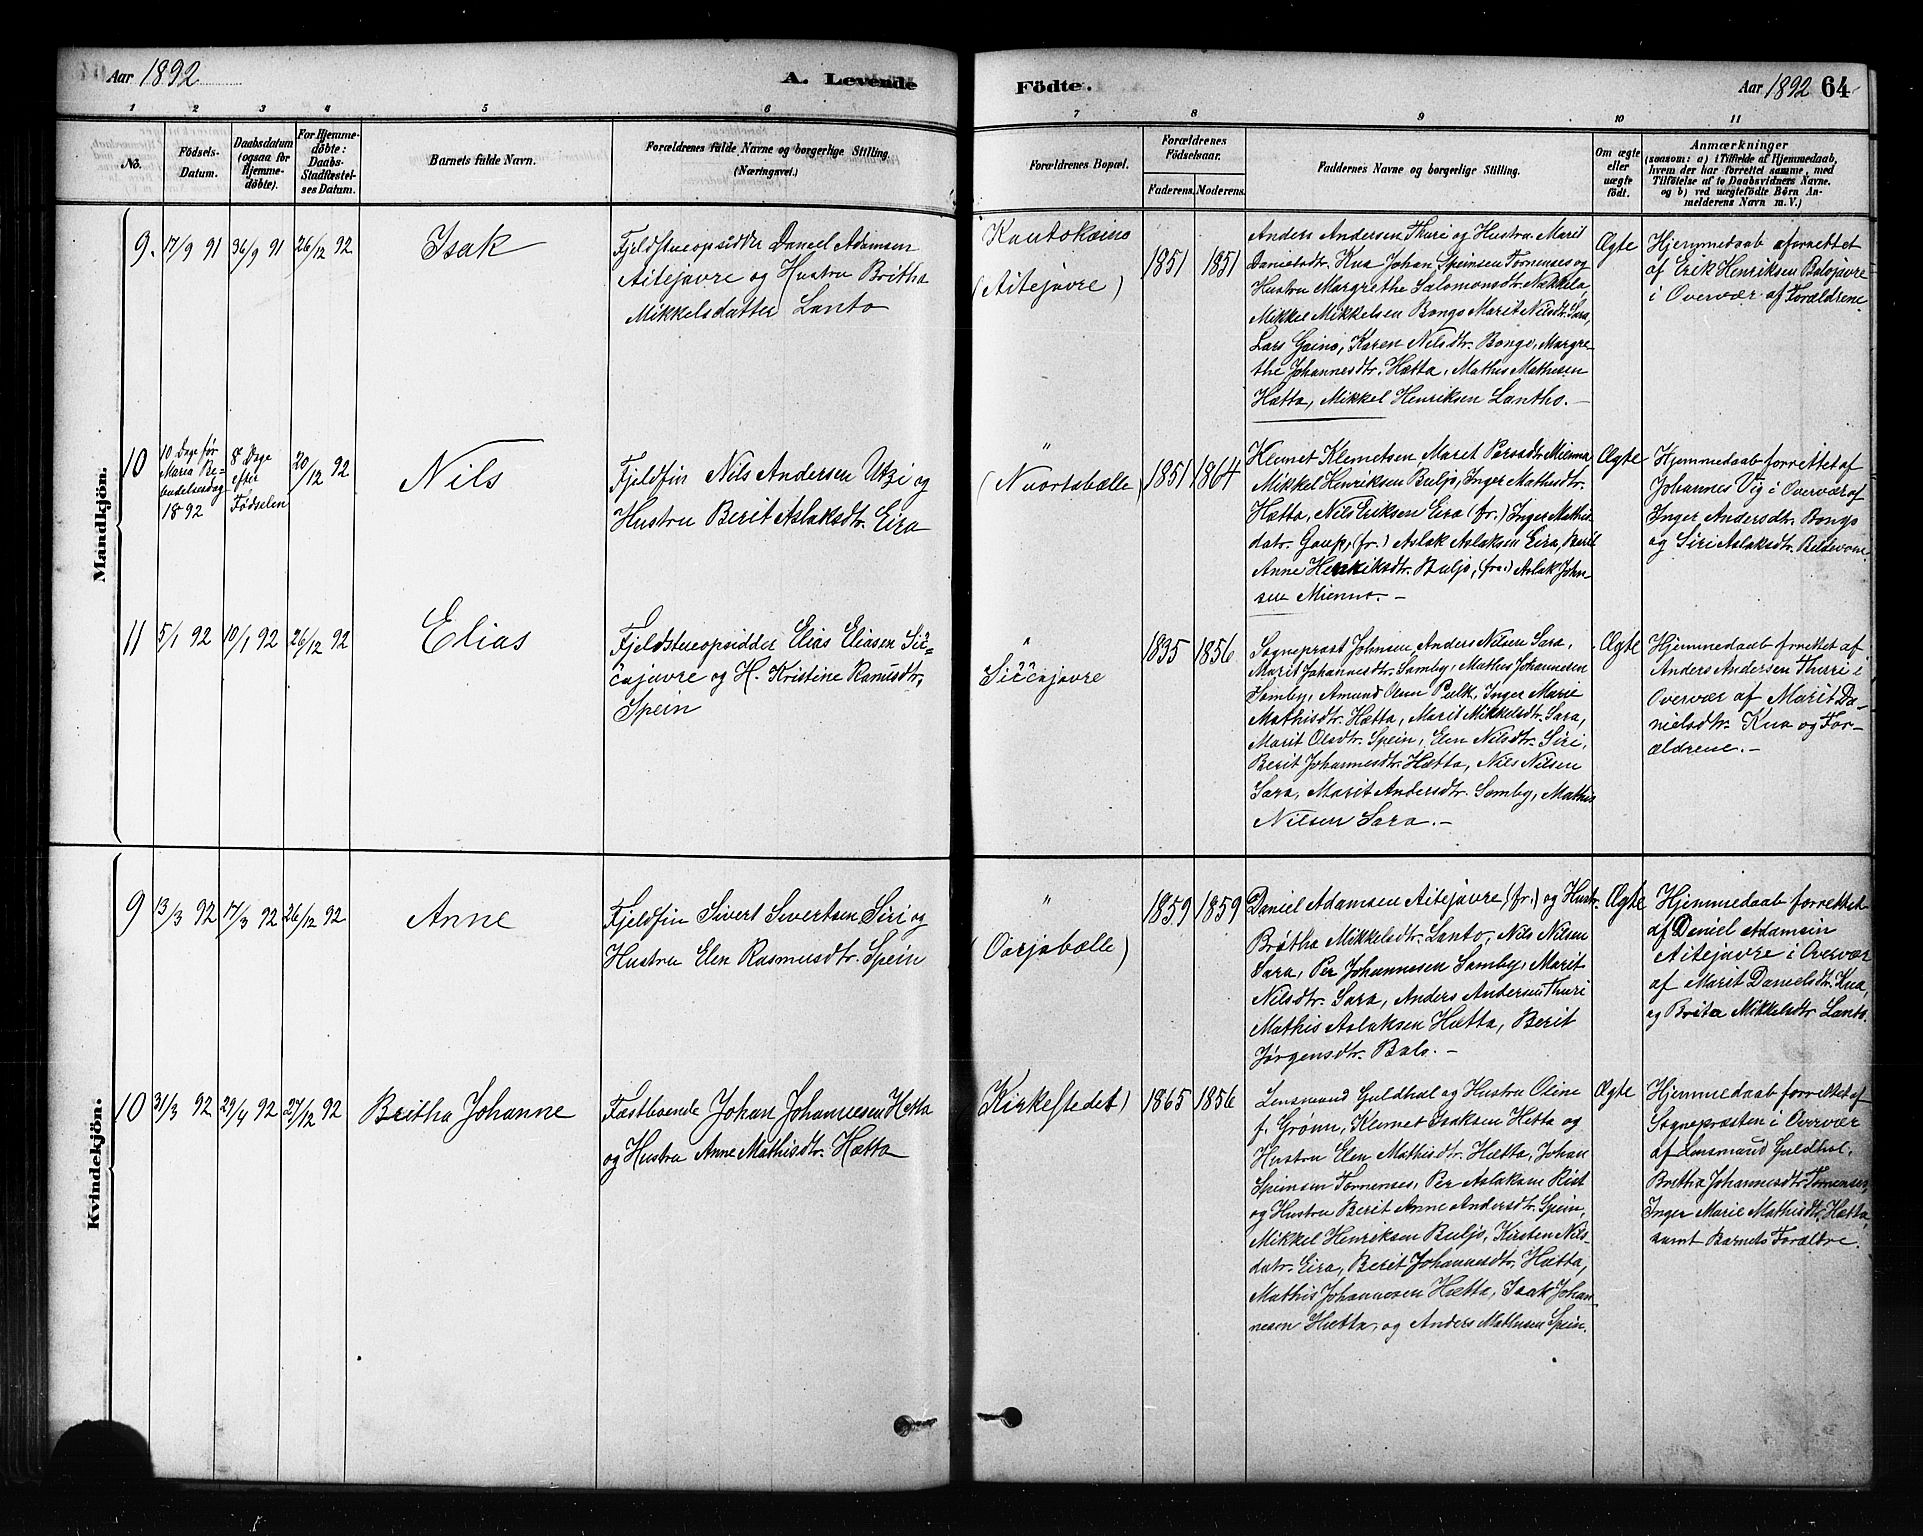 Aar 1892
A. Levende
Födte.
Aar 1892 64
1 2 3 4 5 6 7 8 9 10 11
No.
Födsels-
Datum.
Daabsdatum
(ogsaa for
Hjemme-
døbte).
For Hjemme-
döbte:
Daabs-
Stadfæstel-
ses Datum.
Barnets fulde Navn.
Forældrenes fulde Navne og borgerlige Stilling.
(Næringsvei.)
Forældrenes Bopæl.
Forældrenes
Födselsaar.
Faderens. Moderens.
Faddernes Navne og borgerlige Stilling.
Om ægte
eller
uægte
født.
Anmærkninger
(saasom: a) i Tilfælde af Hjemmedaab,
hvem der har forrettet samme, med
Tilföielse af to Daabsvidners Navne.
og b) ved uægtefödte Börn An-
melderens Navn m. V.)
Mandkjön.
9. 17/9 91 26/9 91 26/12 92
Isak
Fjeldstueopsidder Daniel Adamsen
Aitejavre og Hustru Britha
Mikkelsdatter Lanto
Kautokeino
(Aitejavre)
1851 1851
Anders Andersen Thuri og Hustru Marit
Danielsdtr. Kua Johan Speinsen Tornenses og
Hustru Margrethe Salomonsdtr. Näkkelä,
Mikkel Mikkelsen Bongo Marit Nilsdtr. Sara,
Lars Gaino, Karen Nilsdtr. Bongo, Margre-
the Johannesdtr. Hætta, Mathis Mathisen
Hætta, Mikkel Henriksen Lantho. —
Ægte
Hjemmedaab aforrettet
af Erik Henriksen Balojavre
i Overvær af Forældrene
10
10 Dage før
Maria Be-
budelsesdag
1892
8 Dage
efter
Fødselen
20/12 92
Nils
Fjeldfin Nils Andersen Utzi og
Hustru Berit Aslaksdtr. Eira
"
(Nuortabælle)
1851 1864
Klemet Klemetsen Marit Persdtr. Mienna,
Mikkel Henriksen Buljo, Inger Mathisdtr.
Hætta, Nils Eriksen Eira (fr.) Inger Mathis-
datr. Gaup, (fr.) Aslak Aslaksen Eira, Berit
Anne Henriksdtr. Buljo, (fr.) Aslak John-
sen Mienna. —
Ægte
Hjemmedaab forrettet af
Johannes Vig i Overvær af
Inger Andersdtr. Bongo
og Siri Aslaksdtr.
11 5/1 92 10/1 92 26/12 92
Elias
Fjeldstueopsidder Elias Eliasen Sič=
čajavre og H. Kristine Rasmusdtr.
Spein
"
Siččajavre
1835 1856
Sogneprest Johnsen, Anders Nilsen Sara,
Marit Johannesdtr. Somby, Mathis Johannesen
Somby, Amund Olsen Pulk, Inger Marie
Mathisdtr. Hætta, Marit Mikkelsdtr. Sara,
Marit Olsdtr. Spein, Elen Nilsdtr. Siri,
Berit Johannesdtr. Hætta, Nils Nilsen
Sara, Marit Andersdtr. Somby, Mathis
Nilsen Sara. —
Ægte
Hjemmedaab forrettet af
Anders Andersen Thuri i
Overvær af Marit Da-
nielsdtr. Kua og For-
ældrene. —
Kvindekjön.
9 13/3 92 17/3 92 26/12 92
Anne
Fjeldfin Sivert Sivertsen Siri og
Hustru Elen Rasmusdtr. Spein
"
(Oarjabælle)
1859 1859
Daniel Adamsen Aitejavre (fr.) og Hustr.
Britha Mikkelsdtr. Lanto, Nils Nilsen
Sara, Per Johannesen Somby, Marit
Nilsdtr. Sara, Anders Andersen Thuri
Mathis Aslaksen Hætta, Berit
Jørgensdtr. Balo. —
Ægte
Hjemmedaab forrettet
af Daniel Adamsen
Aitejavre i Overvær
af Marit Danielsdtr. Kua,
og Brita Mikkelsdtr. Lanto.
10 31/3 92 29/4 92 27/12 92
Britha Johanne
Fastboende Johan Johannesen Hætta
og Hustru Anne Mathisdtr. Hætta
Kirkestedet)
1865 1856
Lensmand Guldhal og Hustru Oline
f. Grønn, Klemet Isaksen Hætta og
Hustru Elen Mathisdtr. Hætta, Johan
Speinsen Tornenses, Per Aslaksen Rist
og Hustru Berit Anne Andersdtr. Spein,
Mikkel Henriksen Buljo, Kirsten Nils-
datr. Eira, Berit Johannesdtr. Hætta,
Mathis Johannesen Hætta, Isak Johan-
nesen Hætta, og Anders Mathisen Spein.
Ægte
Hjemmedaab forrettet af
Sognepræsten i Overvær
af Lensmand Guldhal,
Britha Johannesdtr. Tornenses,
Inger Marie Mathisdtr. Hætta,
samt Barnets Forældre.